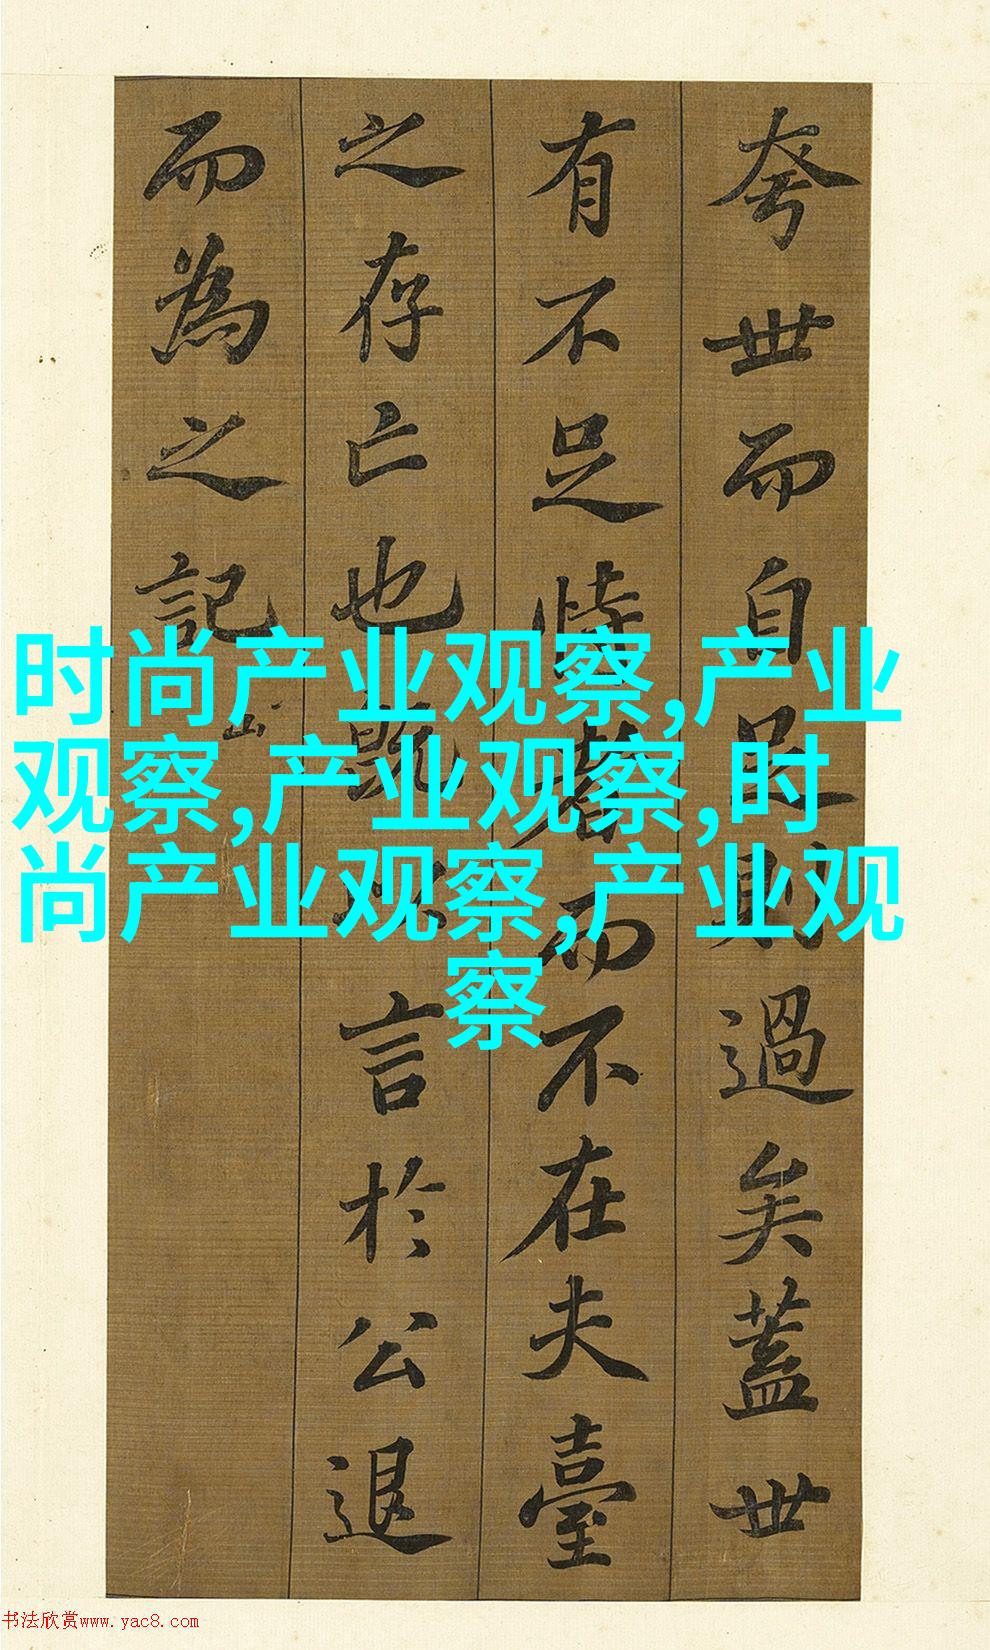 夸世而自足則過矣蓋世
有不足恃者而不在夫臺
之存亡也既以言於公退
而為之記
时尚产业观察,产业
观察,产业观察,时
尚产业观察,产业观
察
书法欣赏www.yac8.com